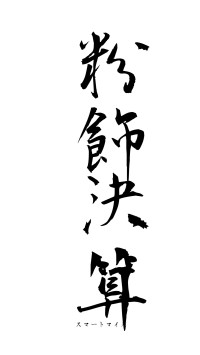 粉飾決算
スマートマイ